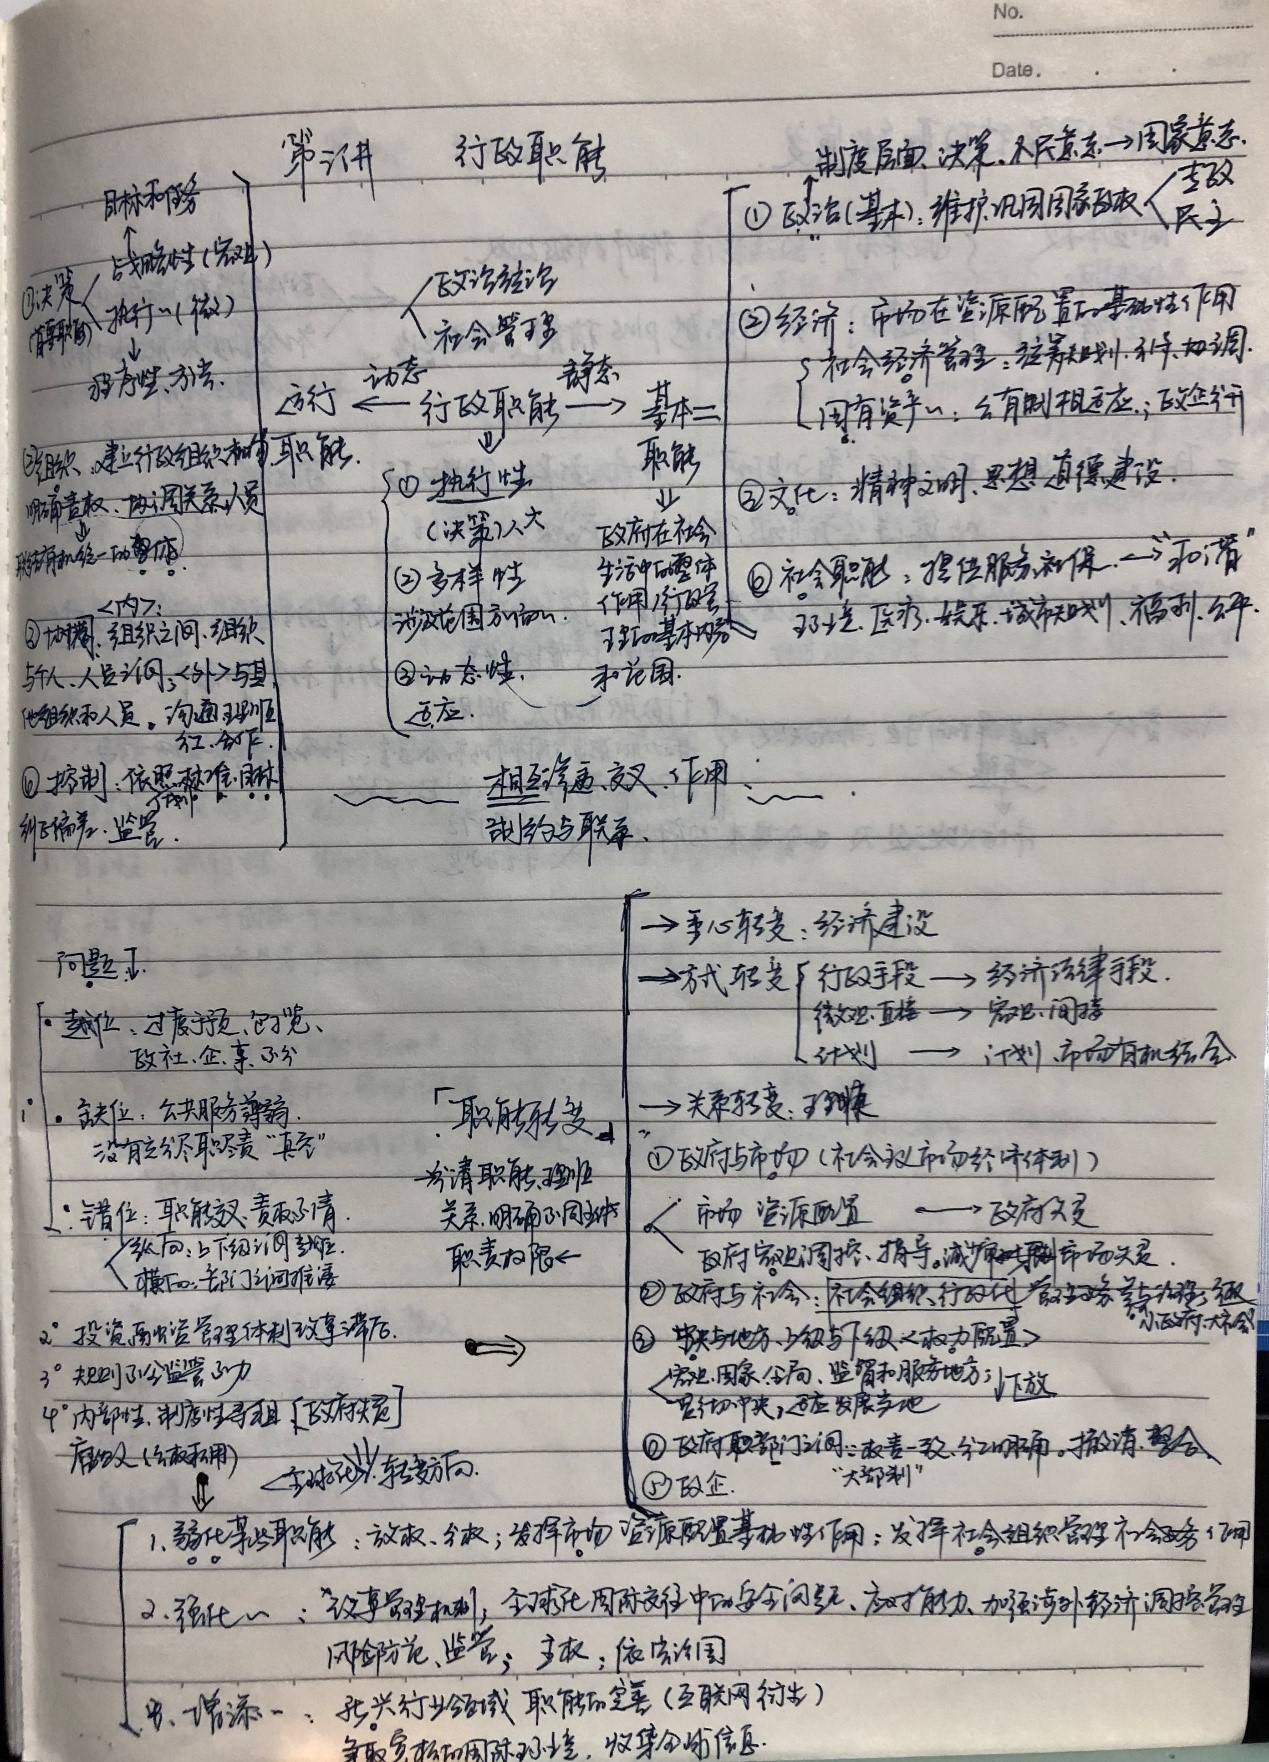 No.
Date.
第 讲 行政职能
制度层面、决策、人民意志→国家意志.
①政治(基本):维护、巩固国家政权
专政
民主
②经济:市场在资源配置的基础性作用
社会经济管理:统筹规划、引导、协调.
国有资产~:公有制相适应;政企分开
③文化:精神文明、思想道德建设.
④社会职能:提供服务、社保.→"和谐"
环境、医疗、娱乐、城市规划、福利、公平.
目标和任务
战略性(宏观)
①决策
(首要职能)
执行~(微)
程序性、方法.
②组织:建立行政组织机构
明确责权、协调关系、人员
联结有机统一的整体.
<内>:
③协调:组织之间、组织
与个人、人员之间;<外>与其
他组织和人员。沟通理顺
分工、合作.
④控制:依照标准、目标
计划
纠正偏差、监管.
政治统治
社会管理
运行 ← 动态 行政职能 静态 → 基本
职能.
职能
①执行性
(决策)人大
②多样性
涉及范围方位~.
③动态性.
适应.
政府在社会
生活中的整体
作用/行政管
理的基本内容
和范围.
相互渗透、交叉、作用
制约与联系.
问题
1°
·越位:过度干预、包揽、
政社、企、事不分
·缺位:公共服务薄弱.
没有充分尽职尽责"真空"
·错位:职能交叉、责权不清.
纵向:上下级之间
横向:部门之间推诿
2°投资 监管管理体制改革滞后.
3°规则不公监管不力
4°内部性、制度性寻租[政府失灵]
腐败(公权私用)
<全球化> 转变方向.
「职能转变」
分清职能、理顺
关系、明确不同主体
职责权限←
→重心转变:经济建设
→方式转变
行政手段 → 经济法律手段.
微观、直接 → 宏观、间接
计划 → 计划、市场有机结合
→关系转变:理顺
①政府与市场(社会主义市场经济体制)
市场 资源配置 → 政府失灵
政府宏观调控、指导。 市场失灵.
②政府与社会:社会组织行政化
小政府、大社会
③中央与地方、上级与下级<权力配置>
宏观、国家、全局、监督和服务地方;↓下放
贯彻中央,适应发展当地
④政府职部门之间:权责一致、分工明确。撤消、整合
"大部制"
⑤政企.
1、弱化某些职能:放权、分权;发挥市场资源配置基础性作用;发挥社会组织管理社会事务作用
2、强化~:议事管理机制;全球化国际交往中的安全问题、应对能力、加强涉外经济调控管理
风险防范、监管;主权;依法治国
3、增添~:新兴行业领域职能的完善(互联网衍生)
争取宽松的国际环境,收集全球信息.